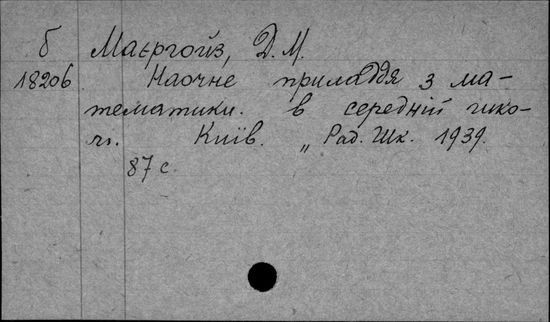 б Маєргойз, Д. М.
18206 Наочне приладдя з ма-
тематики. в середній шко-
лі. Київ. „Рад. Шк. 1939.
87 с.